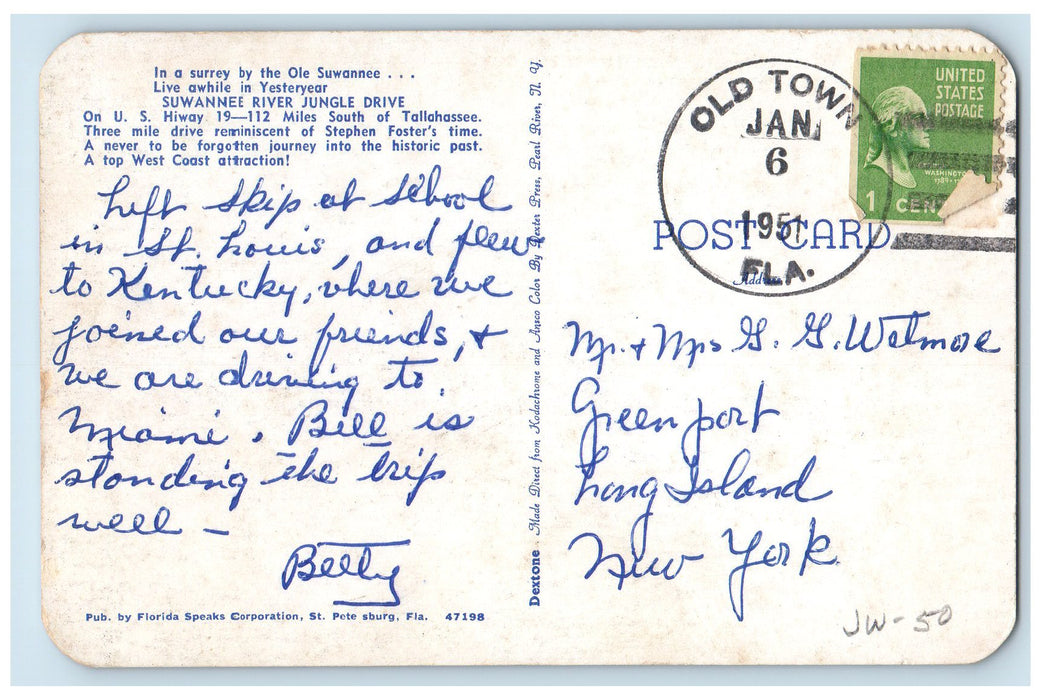 In a surrey by the Ole Suwannee . . .
Live awhile in Yesteryear
SUWANNEE RIVER JUNGLE DRIVE
On U. S. Hiway 19—112 Miles South of Tallahassee.
Three mile drive reminiscent of Stephen Foster's time.
A never to be forgotten journey into the historic past.
A top West Coast attraction!
Left Skip at school
in St. Louis, and flew
to Kentucky, where we
joined our friends, +
we are driving to
Miami. Bill is
standing the trip
well —
Betty
Pub. by Florida Speaks Corporation, St. Pete sburg, Fla. 47198
Dextone - Made Direct from Kodachrome and Ansco Color By Dexter Press, Pearl River, N. Y.
OLD TOWN
JAN
6
1951
FLA.
UNITED
STATES
POSTAGE
WASHINGTON
1 CEN
POST CARD
Address
Mr. + Mrs G. G. Wetmore
Greenport
Long Island
New York
JW-50